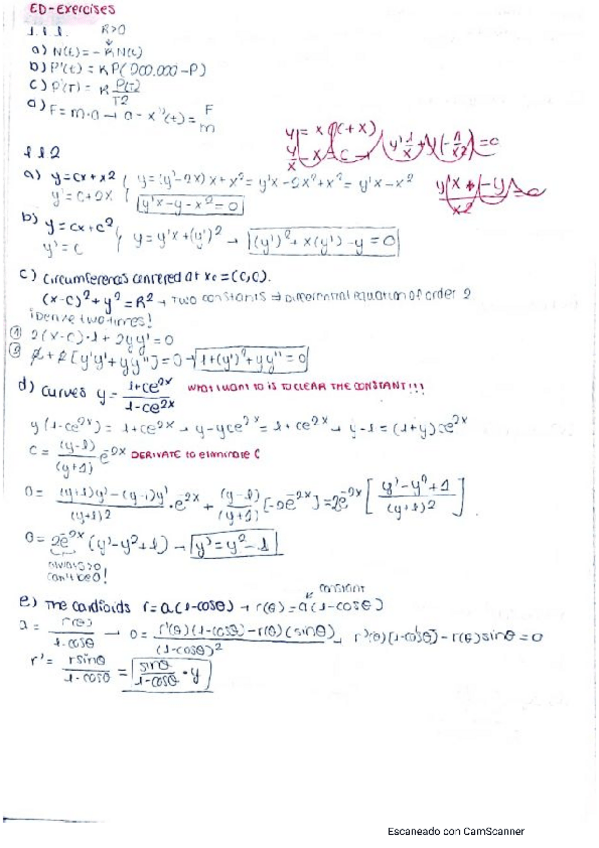 ED-Exercises
1.1.1. K>0
a) N'(t) = -K N(t)
b) P'(t) = K P(200.000-P)
c) P'(T) = K P(T)/T2
d) F = m·a → a = x''(t) = F/m
y = x(c+x)
y/x - x = c → y' 1/x + y(-1/x2) = c
1.1.2
a) y = cx+x2 y = (y'-2x)x+x2 = y'x-2x2+x2 = y'x-x2
y' = c+2x y'x-y-x2=0
y'x + (-y) = c
x2
b) y = cx+c2
y' = c y = y'x+(y')2 → (y')2+x(y')-y=0
c) Circumferences centered at xc = (c,0).
(x-c)2+y2=R2 → two constants ⇒ Differential equation of order 2
¡Derive two times!
① 2(x-c)·1+2yy'=0
② 2+2[y'y'+yy'']=0 → 1+(y')2+yy''=0
d) curves y = 1+ce2x / 1-ce2x WHAT I WANT TO IS TO CLEAR THE CONSTANT!!!
y(1-ce2x) = 1+ce2x → y-yce2x = 1+ce2x → y-1 = (1+y)ce2x
C = (y-1)/(y+1) e-2x DERIVATE to eliminate C
0 = (y+1)y'-(y-1)y' / (y+1)2 · e-2x + (y-1)/(y+1) [-2e-2x] = 2e-2x [ y'-y2+1 / (y+1)2 ]
0 = 2e-2x (y'-y2+1) → y'=y2-1
always>0
can't be 0!
constant
e) The cardioids r=a(1-cosθ) → r(θ)=a(1-cosθ)
a = r(θ) / 1-cosθ → 0 = r'(θ)(1-cosθ)-r(θ)(sinθ) / (1-cosθ)2 , r'(θ)(1-cosθ)-r(θ)sinθ=0
r' = r sinθ / 1-cosθ = sinθ / 1-cosθ · y
Escaneado con CamScanner